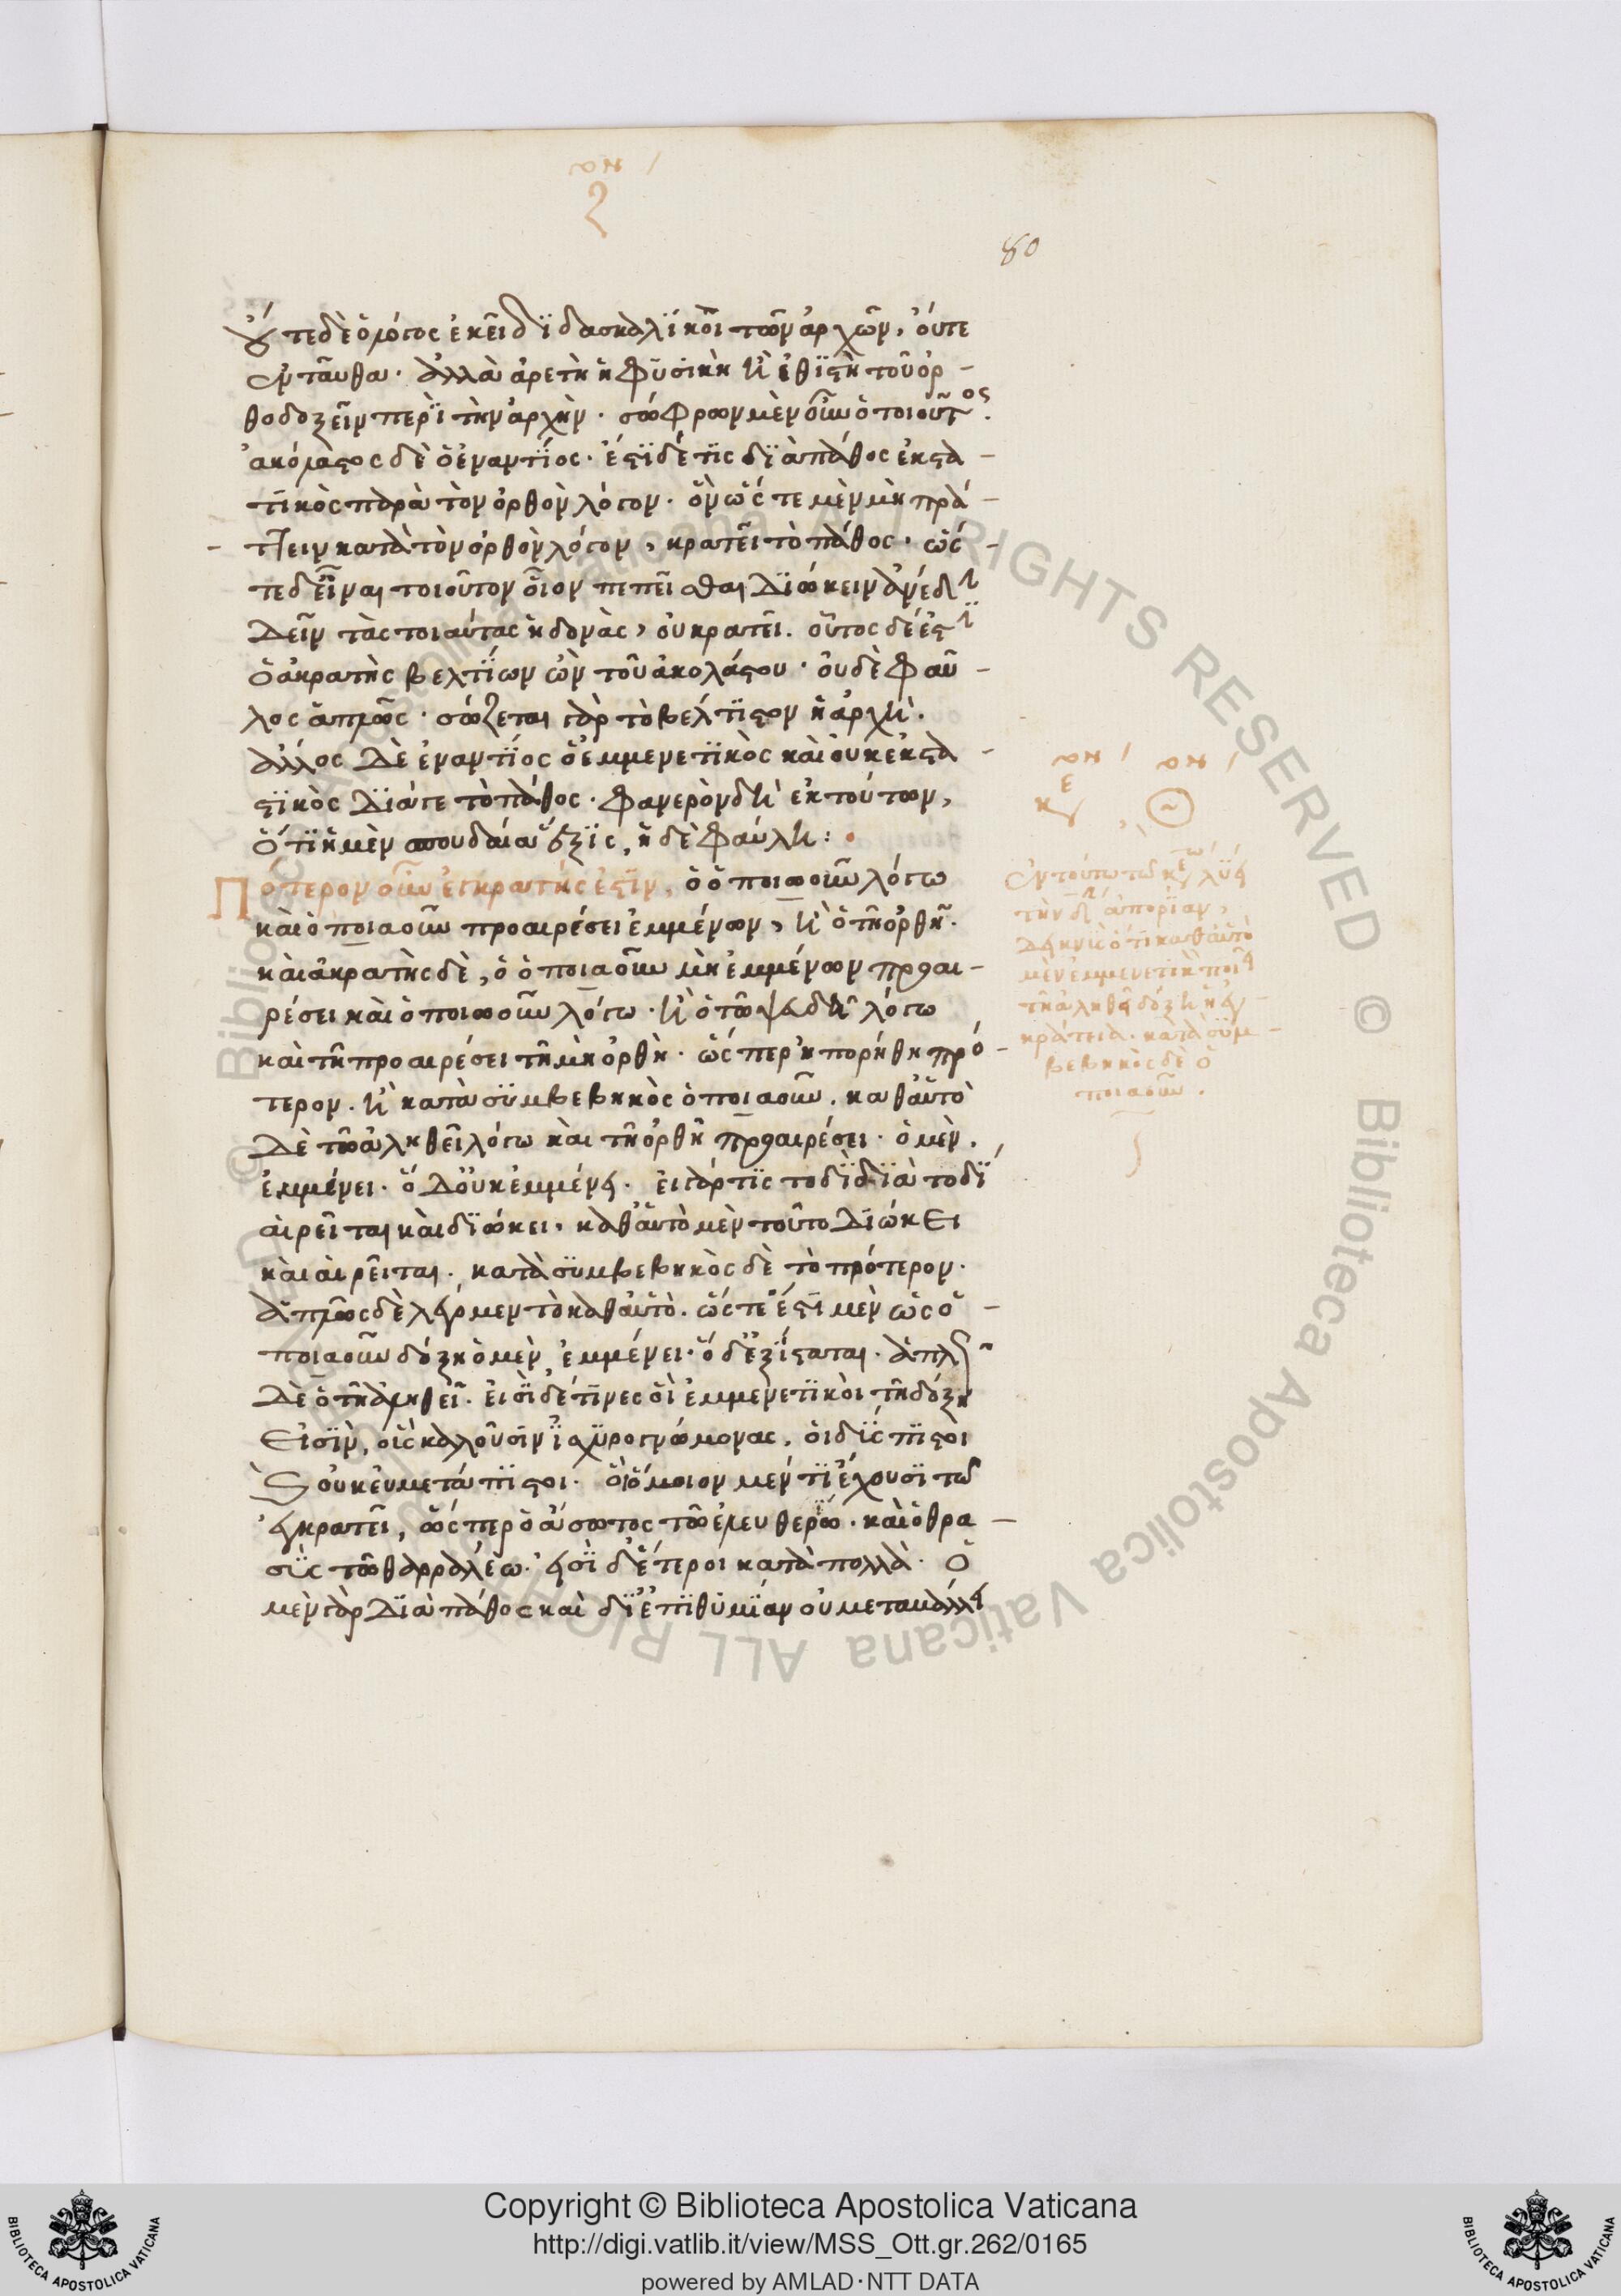 ον
η
80
Οὔτε δὲ ὁ λόγος ἐκεῖ διδασκαλικὸι τῶν ἀρχῶν, ὄυτε
ἐνταῦθα· ἀλλὰ ἀρετὴ ἢ φυσικὴ ἢ ἐθιστὴ τοῦ ὀρ-
θοδοξεῖν περὶ τὴν ἀρχήν· σώφρων μὲν οὖν ὁ τοιοῦτος.
ἀκόλαστος δὲ ὁ ἐναντίος· ἔστι δέ τις διὰ πάθος ἐκστα-
τικὸς παρὰ τὸν ὀρθὸν λόγον· ὃν ὥστε μὲν μὴ πρά-
ττειν κατὰ τὸν ὀρθὸν λόγον, κρατεῖ τὸ πάθος· ὥς-
τε δ' εἶναι τοιοῦτον οἷον πεπεῖσθαι διώκειν ἀνέδην
δεῖν τὰς τοιαύτας ἡδονὰς, οὐ κρατεῖ. οὗτός δέ ἐστι
ὁ ἀκρατὴς βελτίων ὢν τοῦ ἀκολάστου· οὐδὲ φαῦ-
λος ἁπλῶς· σώζεται γὰρ τὸ βέλτιστον ἡ ἀρχή.
ἄλλος δὲ ἐναντίος ὁ ἐμμενετικὸς καὶ οὐκ ἐκστα-
στικὸς διά γε τὸ πάθος· φανερὸν δὴ ἐκ τούτων,
ὅτι ἡ μὲν σπουδαία ἕξις, ἡ δὲ φαύλη:
Πότερον οὖν ἐγκρατής ἐστιν, ὁ ὁποιωοῦν λόγω
καὶ ὁποιαοῦν προαιρέσει ἐμμένων, ἢ ὁ τῆ ὀρθῆ.
καὶ ἀκρατὴς δὲ, ὁ ὁποιαοῦν μὴ ἐμμένων προαι-
ρέσει καὶ ὁποιωοῦν λόγω· ἢ ὁ τῶ ψευδῆ λόγω
καὶ τῆ προαιρέσει τῆ μὴ ὀρθῆ· ὥσπερ ἠπορήθη πρό-
τερον. ἢ κατὰ συμβεβηκὸς ὁποιαοῦν. καθ' αὑτὸ
δὲ τῶ ἀληθεῖ λόγω καὶ τῆ ὀρθῆ προαιρέσει· ὁ μὲν.
ἐμμένει· ὁ δ' οὐκ ἐμμένει. εἰ γάρ τις τοδὶ διὰ τοδὶ
αἱρεῖται καὶ διώκει, καθ' αὑτὸ μὲν τοῦτο διώκει
καὶ αἱρεῖται. κατὰ συμβεβηκὸς δὲ τὸ πρότερον.
ἁπλῶς δὲ λέγομεν τὸ καθ' αὑτὸ. ὥστε ἔστι μὲν ὡς ὁ-
ποιαοῦν δόξη ὁ μὲν ἐμμένει· ὁ δ' ἐξίσταται. ἁπλῶς
δὲ ὁ τῆ ἀληθεῖ. εἰσὶ δέ τινες οἳ ἐμμενετικοὶ τῆ δόξη
εἰσὶν, οἷς καλοῦσιν ἰσχυρογνώμονας, οἱ δύσπιστοι
καὶ οὐκ εὐμετάπιστοι. οἳ ὅμοιον μέν τι ἔχουσι τῶ
ἐγκρατεῖ, ὥσπερ ὁ ἄσωτος τῶ ἐλευθερίω. καὶ ὁ θρα-
σὺς τῶ θαρραλέω. εἰσὶ δ' ἕτεροι κατὰ πολλὰ· ὁ
μὲν γὰρ διὰ πάθος καὶ δι' ἐπιθυμίαν οὐ μεταβάλλει
ον ον
ἐν τούτω τῶ κεφ λύει
τὴν ἀπορίαν,
δεικνὺς ὅτι καθ' αὑτὸ
μὲν ἐμμενετικὴ ποιεῖ
τῆ ἀληθεῖ δόξη ἡ ἐγ-
κράτεια. κατὰ συμ-
βεβηκὸς δὲ ὁ
ποιαοῦν.
© Biblioteca Apostolica Vaticana ALL RIGHTS RESERVED © Biblioteca Apostolica Vaticana ALL RIGHTS RESERVED
BIBLIOTECA APOSTOLICA VATICANA
Copyright © Biblioteca Apostolica Vaticana
http://digi.vatlib.it/view/MSS_Ott.gr.262/0165
powered by AMLAD·NTT DATA
BIBLIOTECA APOSTOLICA VATICANA